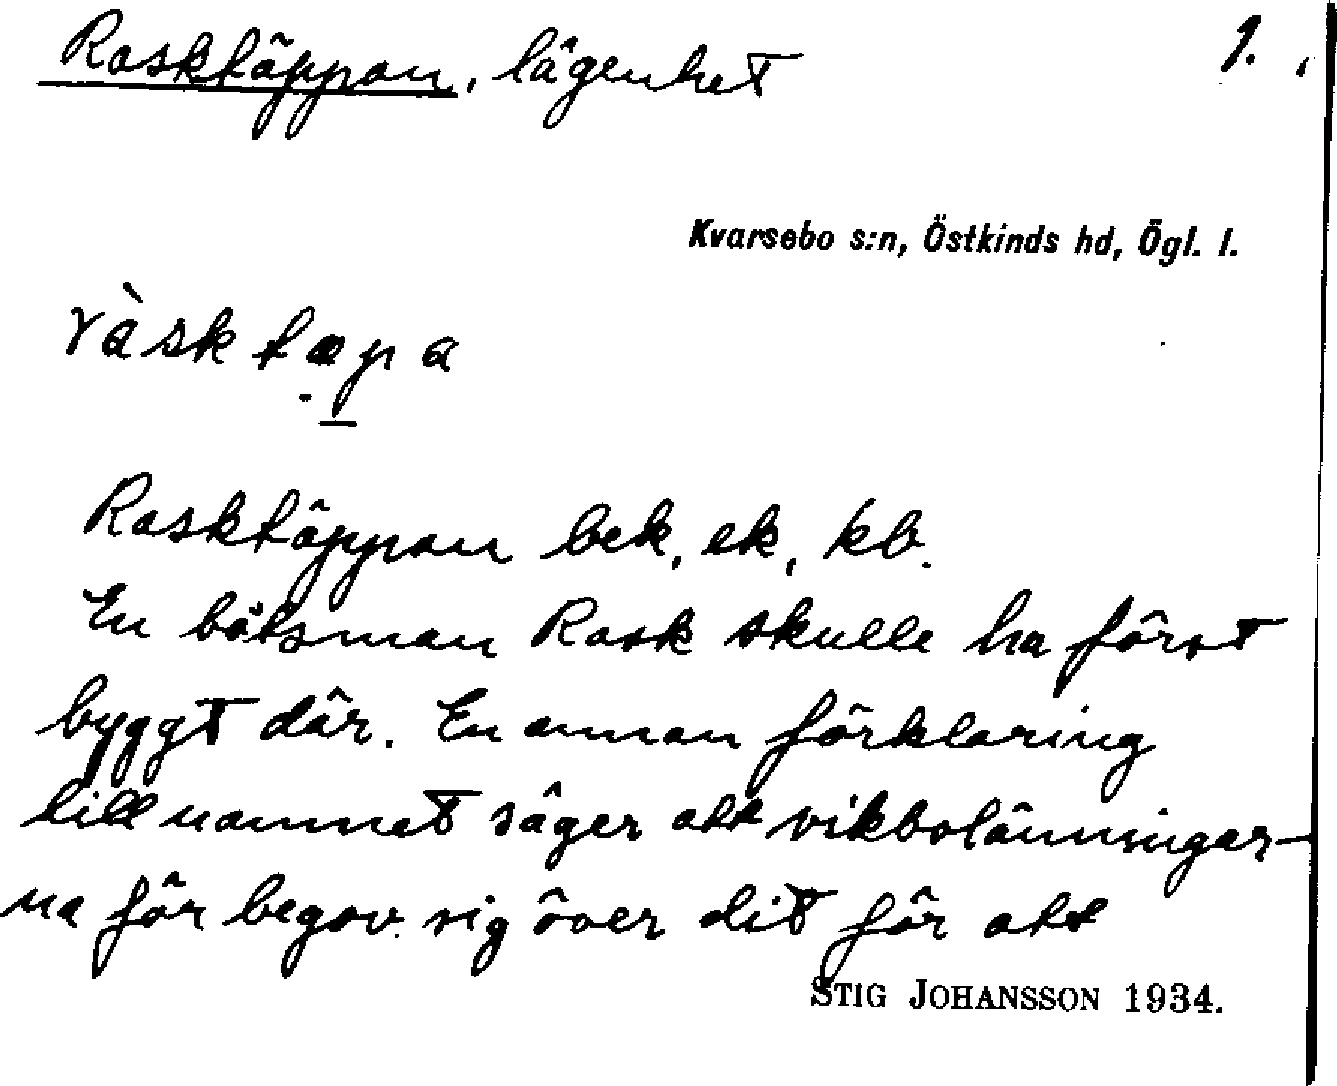 Rasktäppan, lägenhet 1.
Kvarsebo s:n, Östkinds hd, Ögl. l.
ràsktæpa
Rasktäppan bek, ek, kb.
En båtsman Rask skulle ha först
byggt där. En annan förklaring
till namnet säger att vikbolänningar-
na för begav sig över dit för att
STIG JOHANSSON 1934.